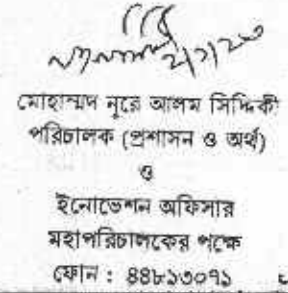 মোহাম্মদ নূরে আলম সিদ্দিকী
পরিচালক (প্রশাসন ও অর্থ)
ও
ইনোভেশন অফিসার
মহাপরিচালকের পক্ষে
ফোন : ৪৪৮১৩০৭১